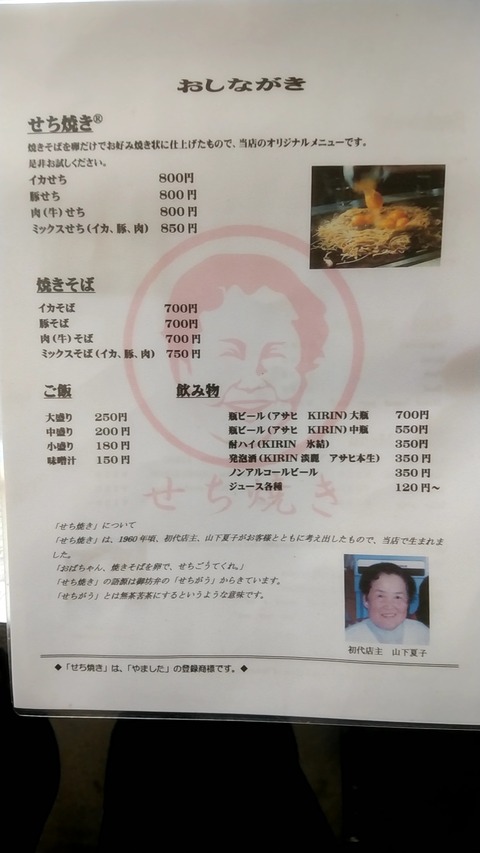 おしながき
せち焼き®
焼きそばを卵だけでお好み焼き状に仕上げたもので、当店のオリジナルメニューです。
是非お試しください。
イカせち 800円
豚せち 800円
肉(牛)せち 800円
ミックスせち(イカ、豚、肉) 850円
焼きそば
イカそば 700円
豚そば 700円
肉(牛)そば 700円
ミックスそば(イカ、豚、肉) 750円
ご飯
大盛り 250円
中盛り 200円
小盛り 180円
味噌汁 150円
飲み物
瓶ビール(アサヒ KIRIN)大瓶 700円
瓶ビール(アサヒ KIRIN)中瓶 550円
酎ハイ(KIRIN 氷結) 350円
発泡酒(KIRIN淡麗 アサヒ本生) 350円
ノンアルコールビール 350円
ジュース各種 120円~
せち焼き
「せち焼き」について
「せち焼き」は、1960年頃、初代店主、山下夏子がお客様とともに考え出したもので、当店で生まれま
した。
「おばちゃん、焼きそばを卵で、せちごうてくれ。」
「せち焼き」の語源は御坊弁の「せちがう」からきています。
「せちがう」とは無茶苦茶にするというような意味です。
初代店主 山下夏子
◆「せち焼き」は、「やました」の登録商標です。◆